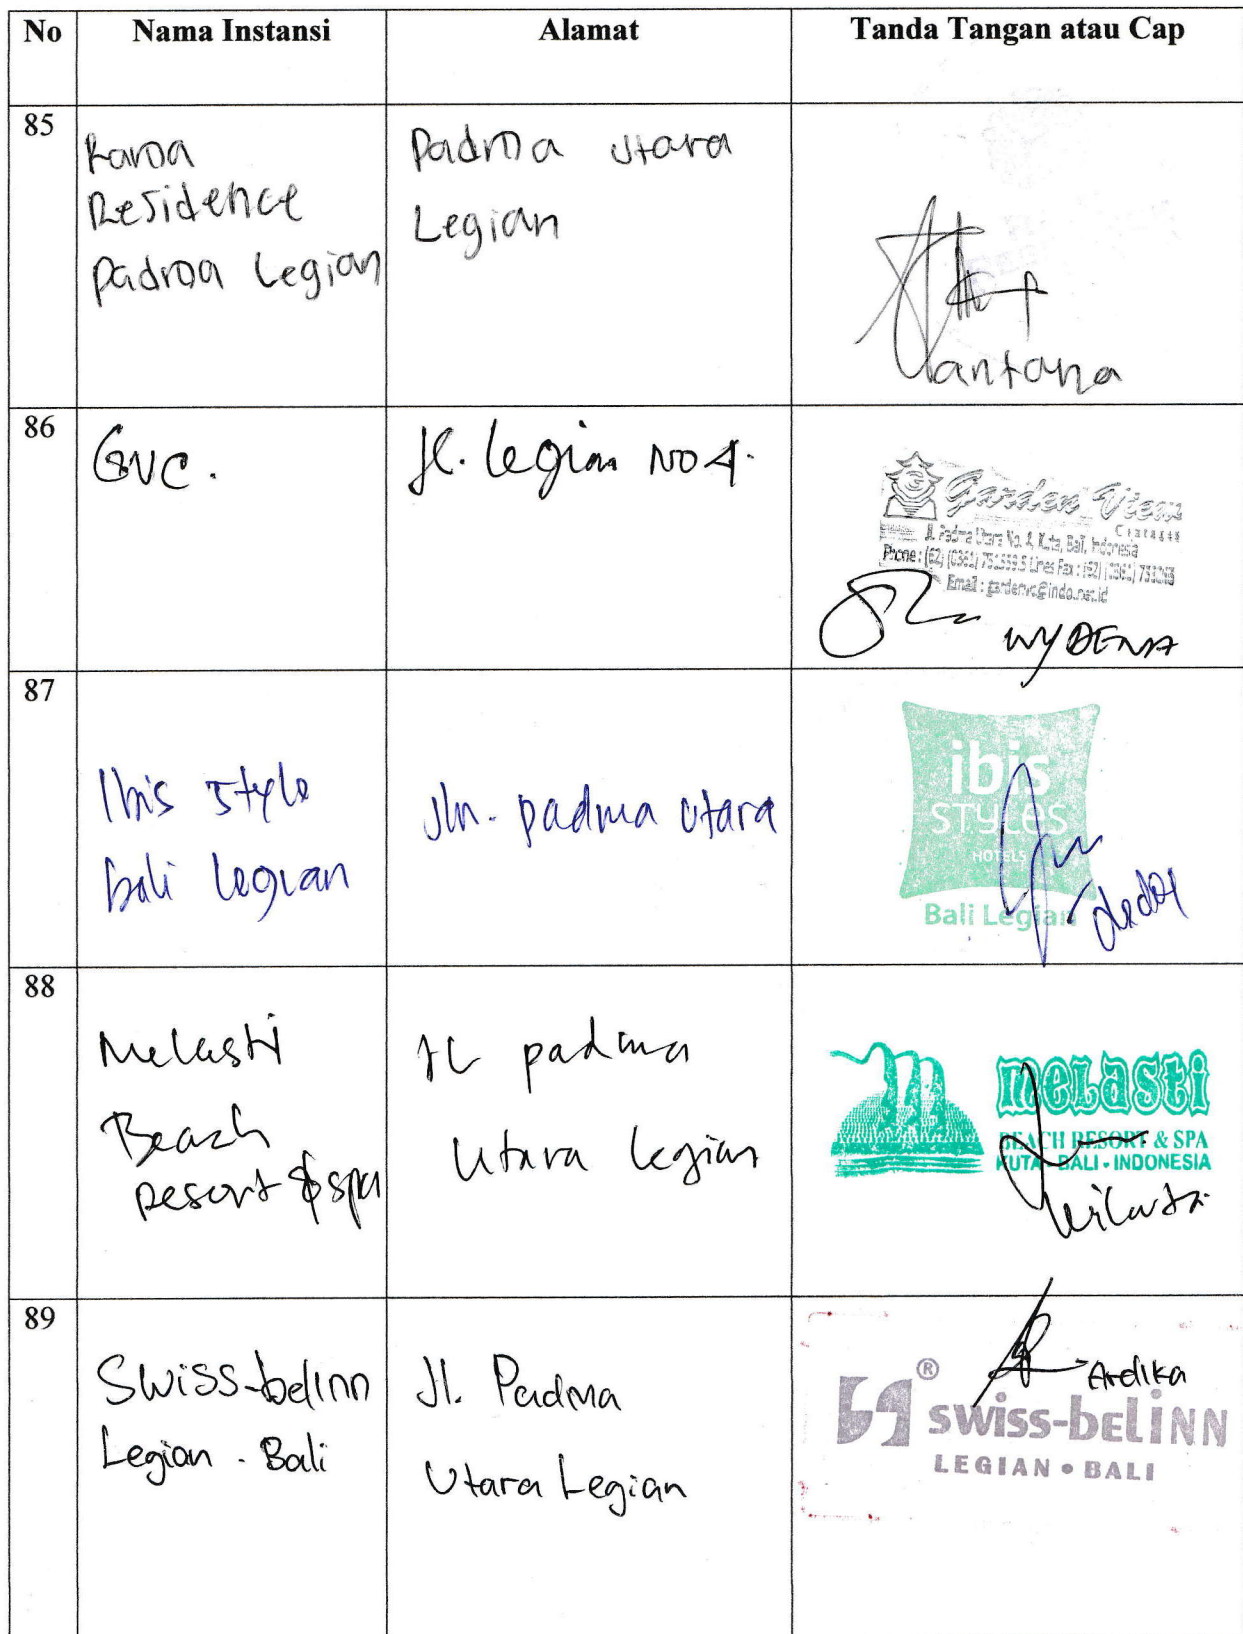 No Nama Instansi Alamat Tanda Tangan atau Cap
85
Rama
Residence
Padma Legian
Padma Utara
Legian
Santana
86
GVC.
Jl. Legian No 4.
Garden View
Cottages
Jl. Padma Utara No. 4, Kuta, Bali, Indonesia
Phone : (62) (0361)
Email : gardenvc@indo.net.id
WY DENA
87
Ibis Style
bali legian
Jln. padma utara
ibis
STYLES
HOTELS
Bali Legian
dedy
88
Melasti
Beach
Resort & spa
JL padma
Utara Legian
melasti
BEACH RESORT & SPA
KUTA - BALI - INDONESIA
89
Swiss-belinn
Legian - Bali
Jl. Padma
Utara Legian
Ardika
swiss-belINN
LEGIAN • BALI